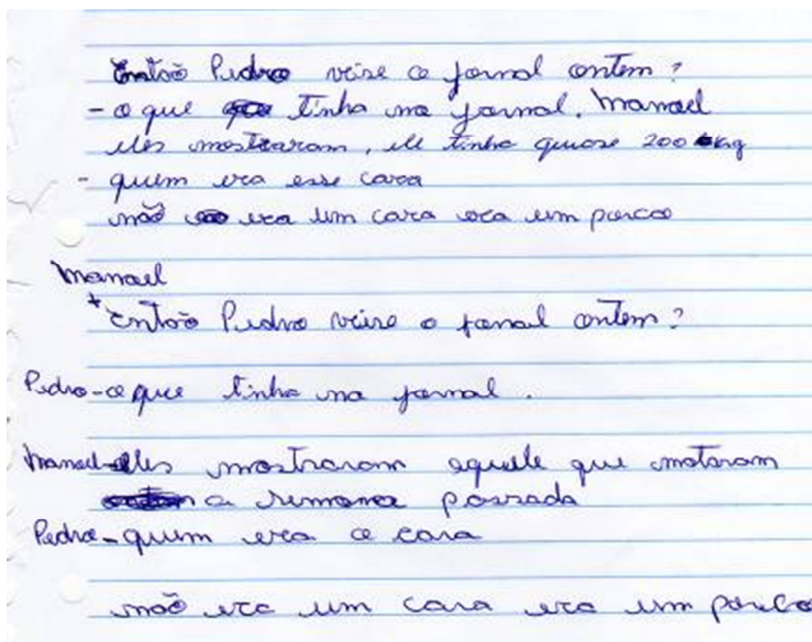 Então Pedro veise o jornal ontem?
- o que tinha na jornal. Manael
eles mostraram, ele tinha quase 200 kg
- quem era esse cara
não era um cara era um porco
Manael
Então Pedro veise o jornal ontem?
Pedro-o que tinha na jornal.
Manael-eles mostraram aquele que mataram
a semana passada
Pedro-quem era o cara
não era um cara era um porco